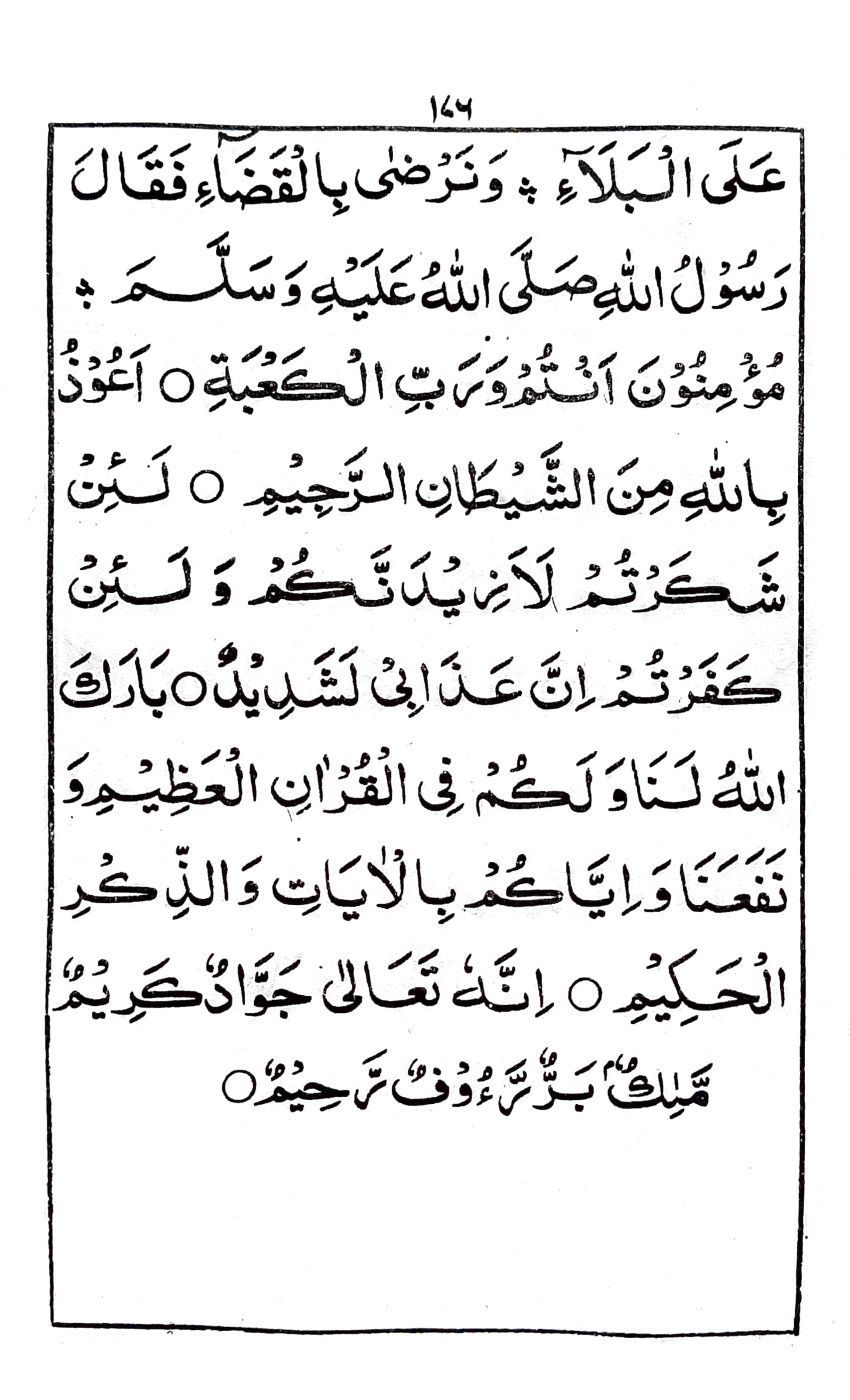 ۱۷۶
عَلَى الْبَلَآءِ ؞ وَنَرْضٰى بِالْقَضَآءِ فَقَالَ
رَسُوْلُ اللّٰهِ صَلَّى اللّٰهُ عَلَيْهِ وَسَلَّمَ ؞
مُؤْمِنُوْنَ اَنْتُمْ وَرَبِّ الْكَعْبَةِ ○ اَعُوْذُ
بِاللّٰهِ مِنَ الشَّيْطَانِ الرَّجِيْمِ ○ لَئِنْ
شَكَرْتُمْ لَاَزِيْدَنَّكُمْ وَ لَئِنْ
كَفَرْتُمْ اِنَّ عَذَابِيْ لَشَدِيْدٌ ○ بَارَكَ
اللّٰهُ لَنَا وَلَكُمْ فِى الْقُرْاٰنِ الْعَظِيْمِ وَ
نَفَعَنَا وَاِيَّاكُمْ بِالْاٰيَاتِ وَالذِّكْرِ
الْحَكِيْمِ ○ اِنَّهٗ تَعَالٰى جَوَّادٌ كَرِيْمٌ
مَّلِكٌ ۢ بَرٌّ رَّءُوْفٌ رَّحِيْمٌ ○